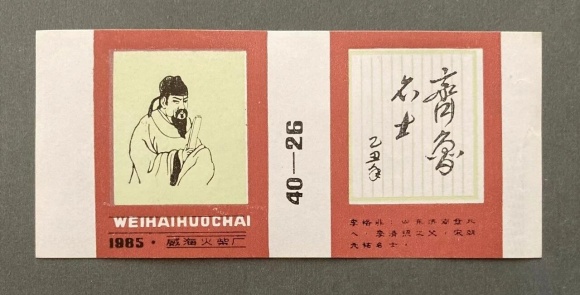 WEIHAIHUOCHAI
1985 · 威海火柴厂
40—26
齐鲁
名士
乙丑年
李格非：山东济南章丘人
，李清照之父，宋朝